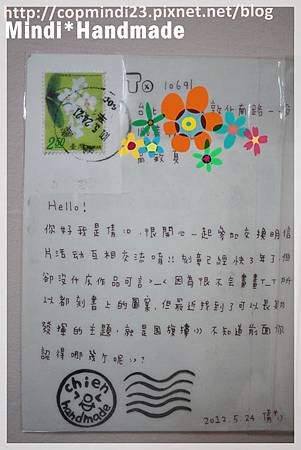 http://copmindi23.pixnet.net/blog
Mindi*Handmade
To 10691
敦化南路一段
Hello!
你好我是倩心,很開心一起參加交換明信
片活动互相交流唷!!刻章已經快3年了但
卻沒什広作品可言>_<因為很不会畫畫T_T所
以都刻書上的圖案,但最近找到了可以長期
發揮的主題,就是國旗 不知道前面你
認得哪幾个呢??
chien
handmade
2012.5.24 倩